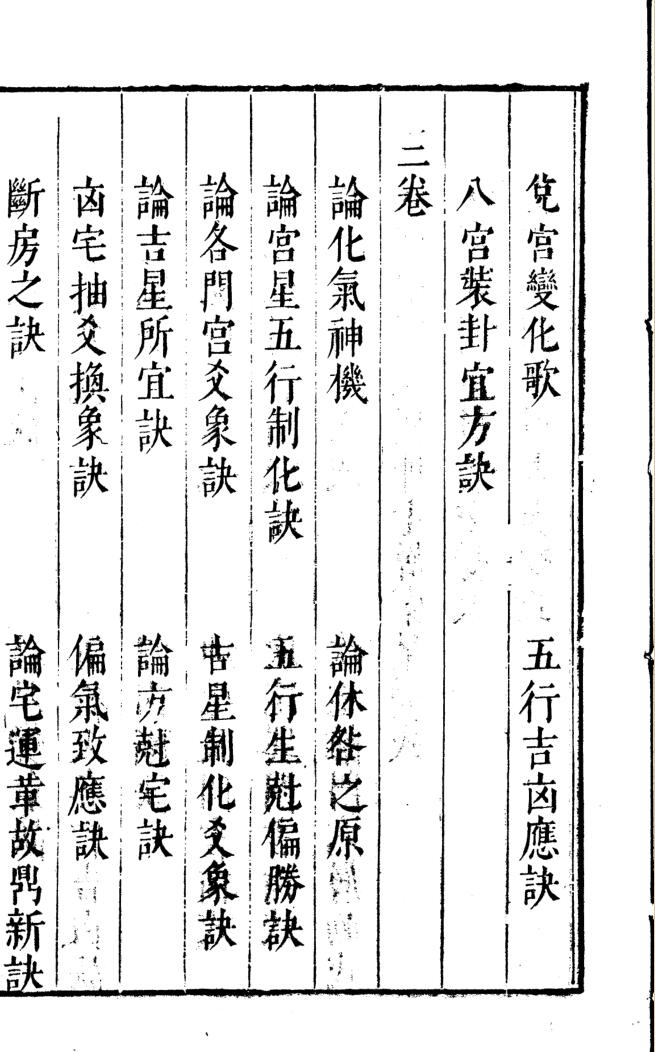 兌宮變化歌　五行吉凶應訣
八宮裝卦宜方訣
二卷
論化氣神機　論休咎之原
論宮星五行制化訣　五行生尅偏勝訣
論各門宮爻象訣　吉星制化爻象訣
論吉星所宜訣　論方尅宅訣
凶宅抽爻換象訣　偏氣致應訣
斷房之訣　論宅運革故鼎新訣